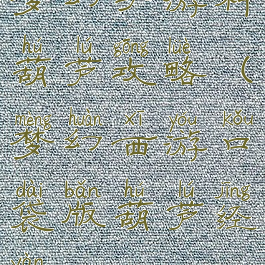 hú lú gōng lüè
葫芦攻略（
mèng huàn xī yóu kǒu
梦幻西游口
dài bǎn hú lú jīng
袋版葫芦经